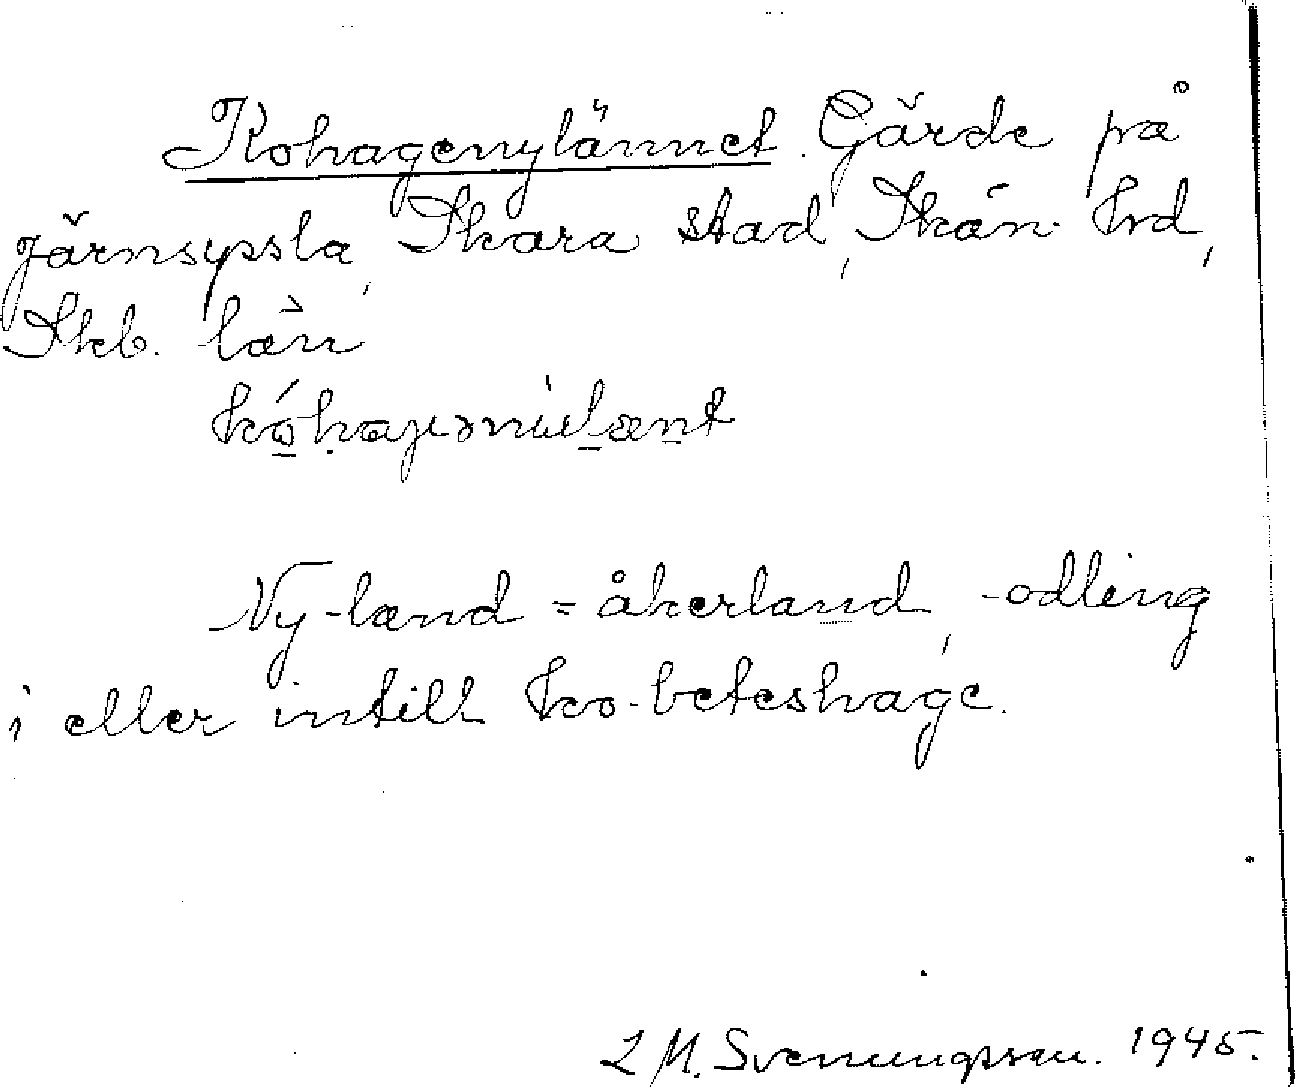 Kohagenylännet. Gärde på
Järnsyssla, Skara stad, Skån. hd,
Skb. län
Ny-land = åkerland, -odling
i eller intill ko-beteshage.
L M. Svenungsson. 1945.